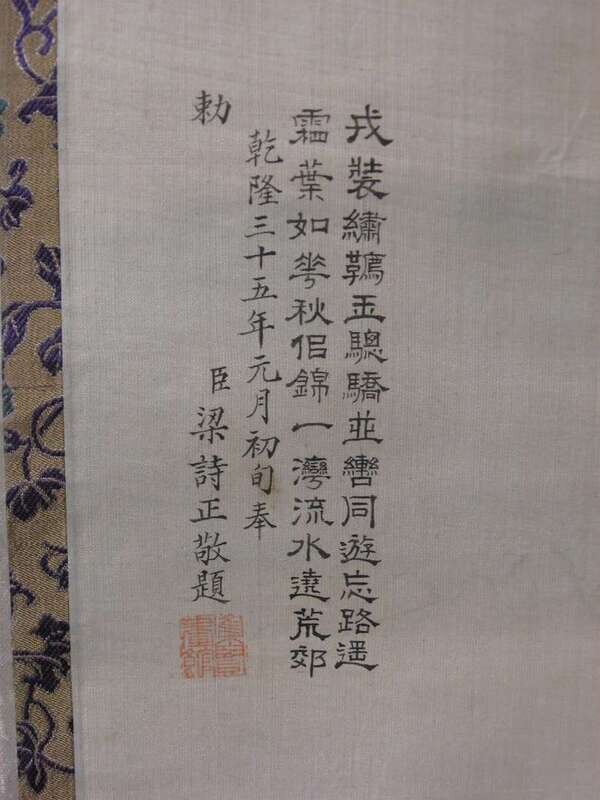 戎裝繡韉玉驄驕並轡同遊忘路遥
霜葉如花秋侣錦一灣流水遶荒郊
乾隆三十五年元月初旬奉
勅
臣梁詩正敬題